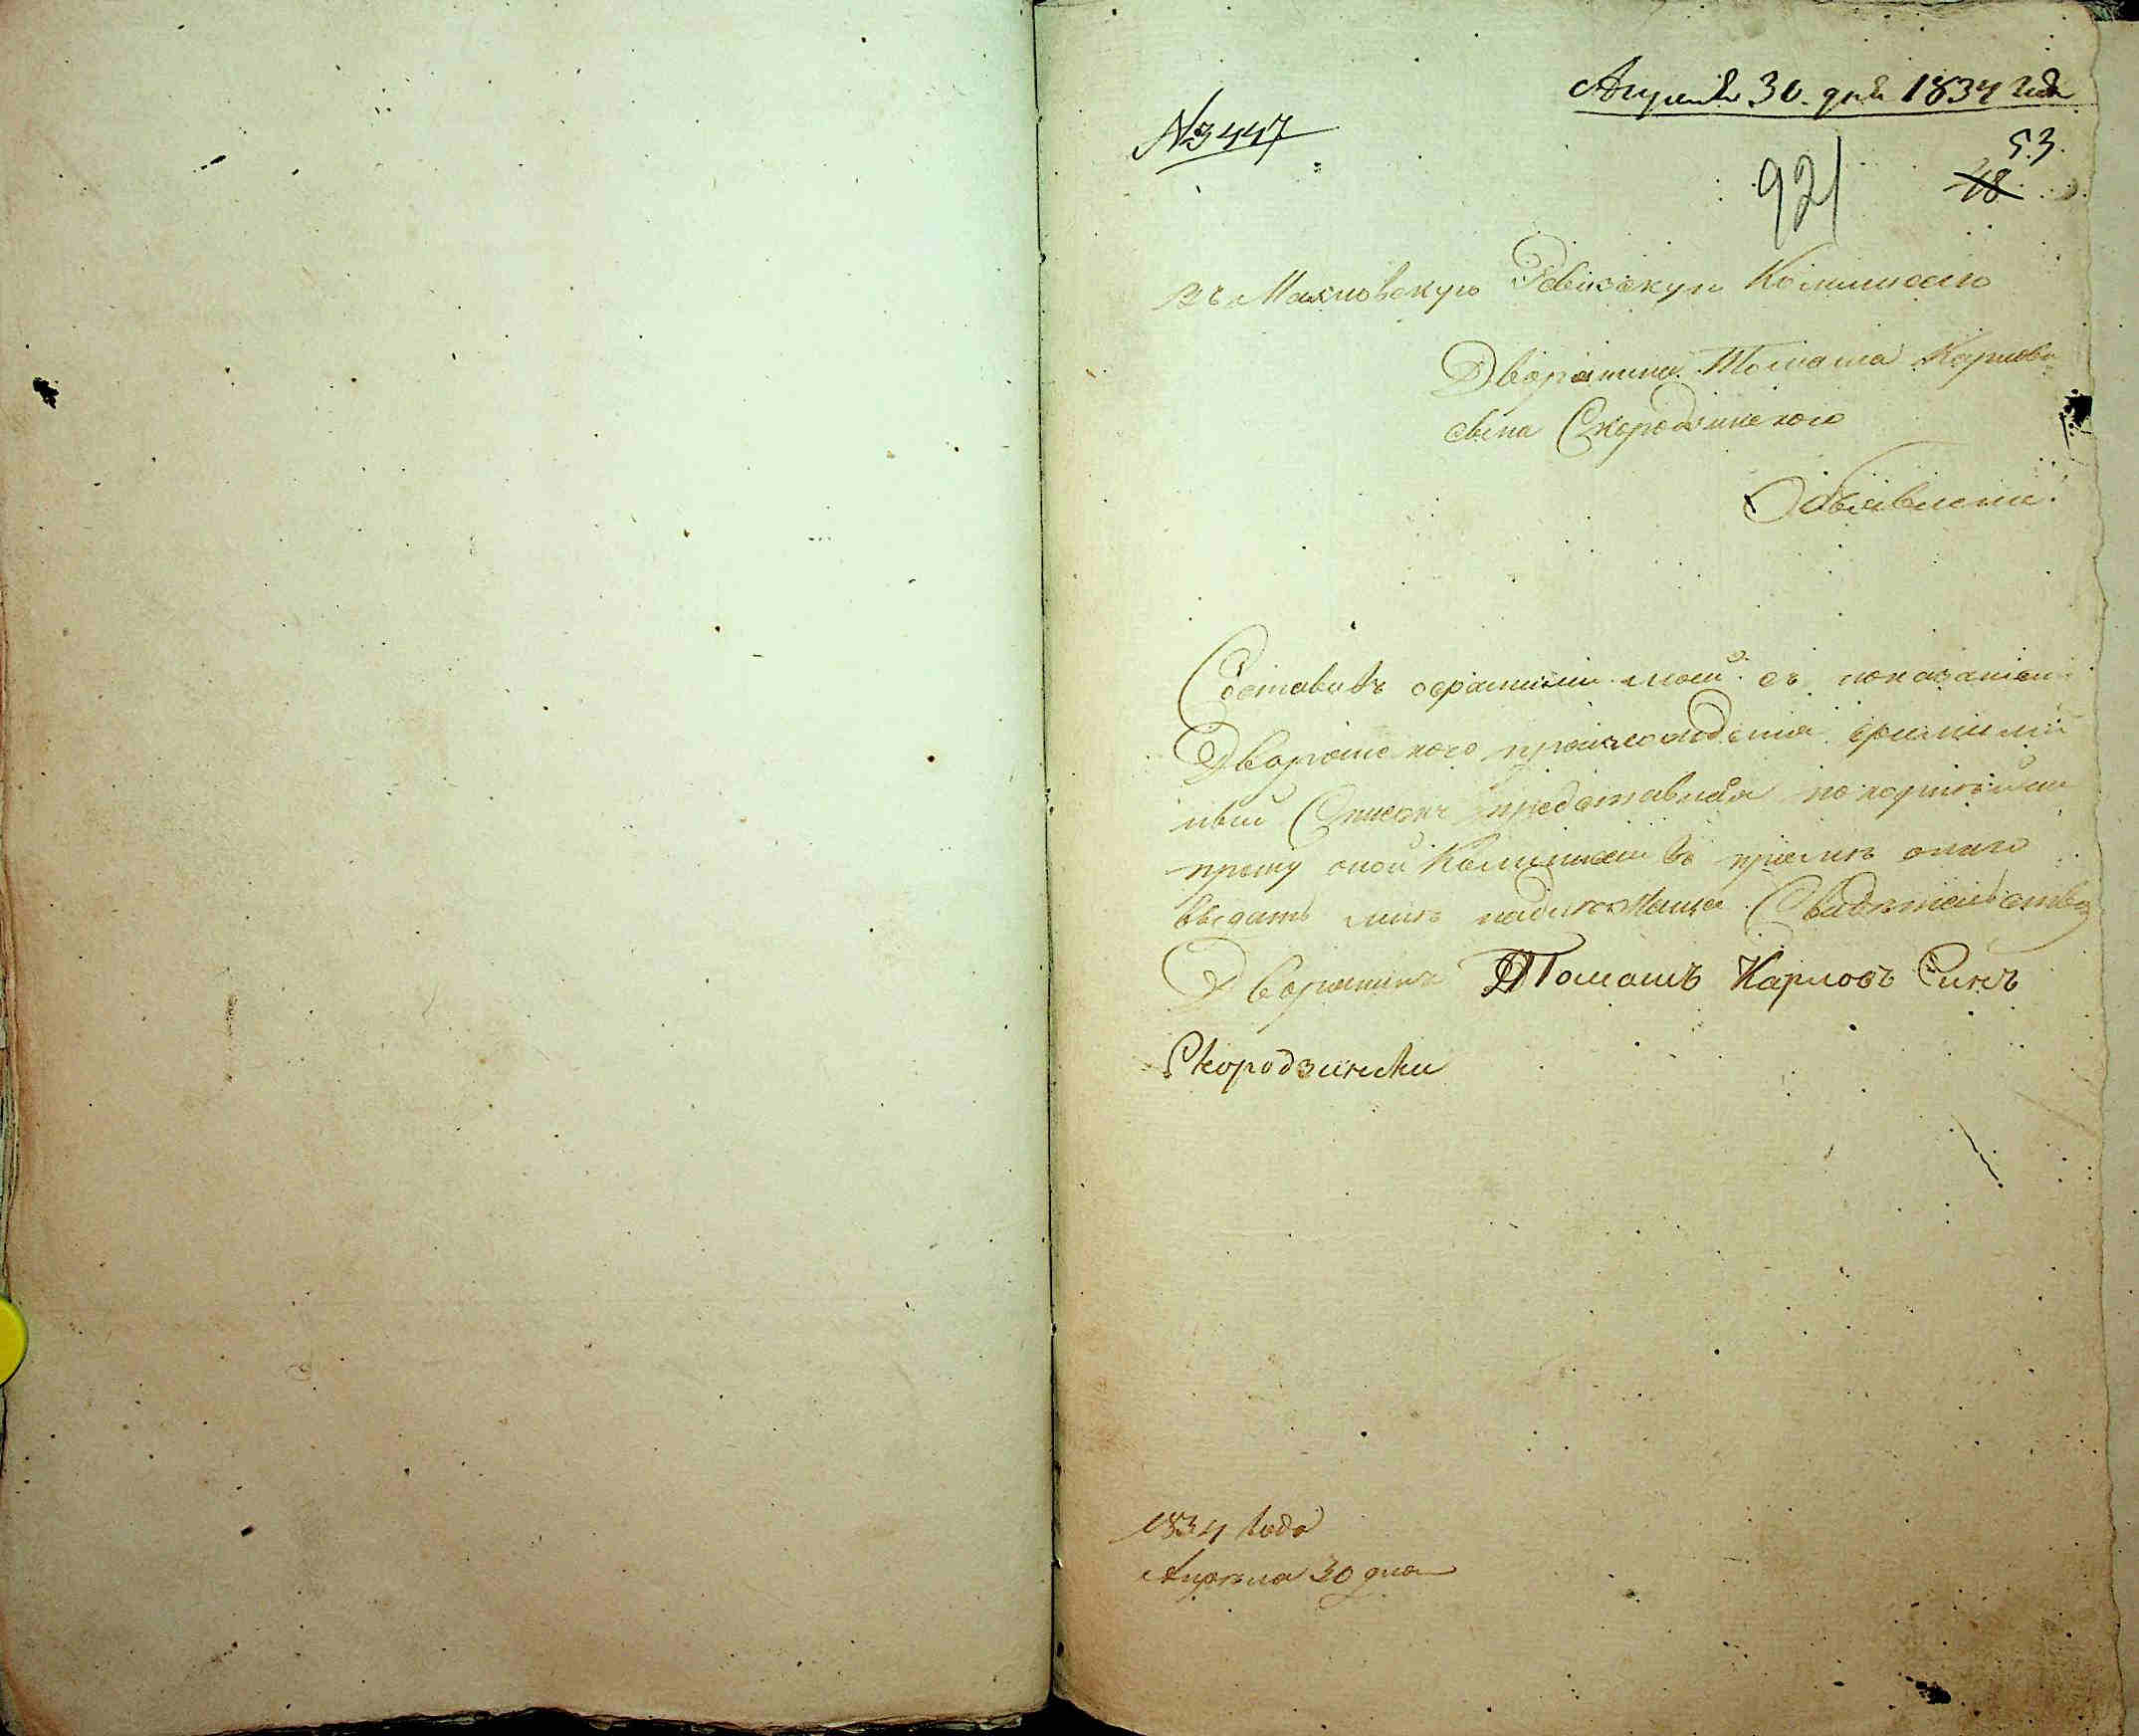 Апреля 30. дня 1834 года
№3447
53.
48.
921
Въ Махновскую Ревизскую Коммисию
Дворянина Томаша Карлова
сына Скородзинского
Объявление.
Составивъ о фамилии моей съ показаниемъ
Дворянского произхождения фамилий
ный Списокъ представляя покорнейше
прошу оной Коммисии въ приеме онаго
выдать мне надлежащее Свидетельство
Дворянинъ Томашъ Карловъ Синъ
Скородзински
1834 Года
Апреля 30 дня